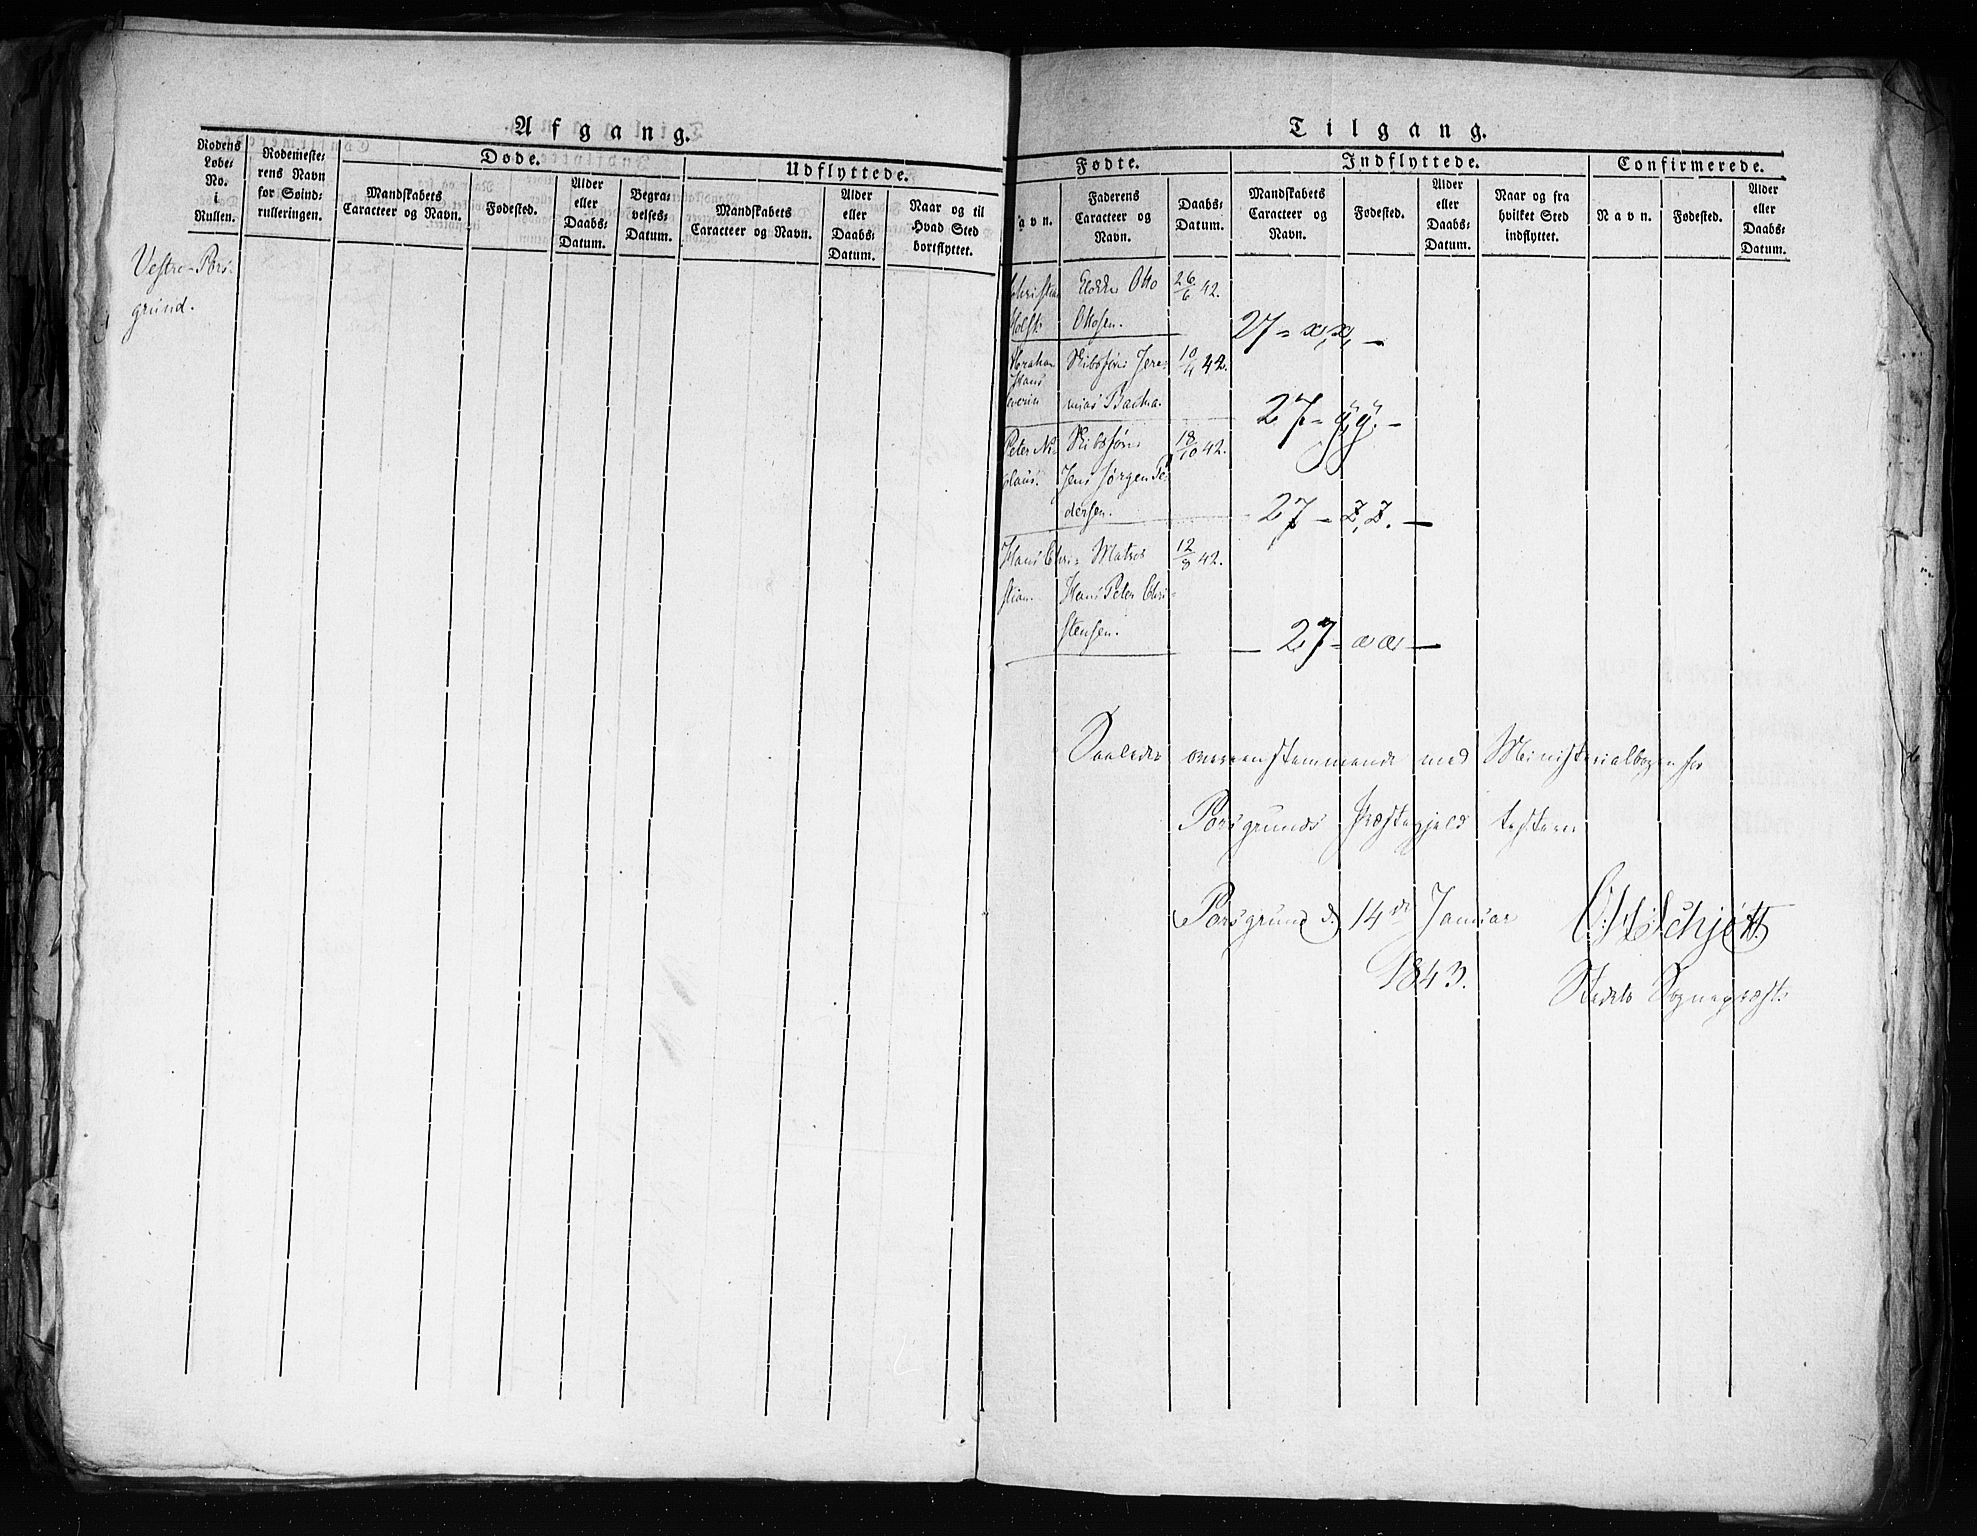 Afgang.
Rodens Løbe-No. i Rullen.
Rodemesterens Navn for Søindrulleringen.
Døde.
Mandskabets Caracteer og Navn.
Fødested.
Alder eller Daabs-Datum.
Begravelses-Datum.
Udflyttede.
Mandskabets Caracteer og Navn.
Alder eller Daabs-Datum.
Naar og til Hvad Sted bortflyttet.
Vestre-Pors-
grund.
Tilgang.
Fødte.
Navn.
Faderens Caracteer og Navn.
Daabs-Datum.
Indflyttede.
Mandskabets Caracteer og Navn.
Fødested.
Alder eller Daabs-Datum.
Naar og fra hvilket Sted indflyttet.
Confirmerede.
Navn.
Fødested.
Alder eller Daabs-Datum.
Christian Otto 26/6 42.
Holst Ottosen.
27 = x,x, —
Abraham Skibsfører Jere- 10/4 42.
Hans
Severin mias Backa.
27 - ÿÿ. -
Peter Ni- Skibsfører 18/10 42.
colaus. Jens Jørgen Pe-
dersen.
- 27 - z,z. —
Hans Chri- Matros 12/8 42.
stian. Hans Peter Chri-
stensen.
— 27 - ææ —
Saaledes overeenstemmende med Ministerialbogen for
Porsgrunds Præstegjeld testerer
Porsgrund d. 14de Januar
1843.
Schjøtt.
Stedets Sognepræst